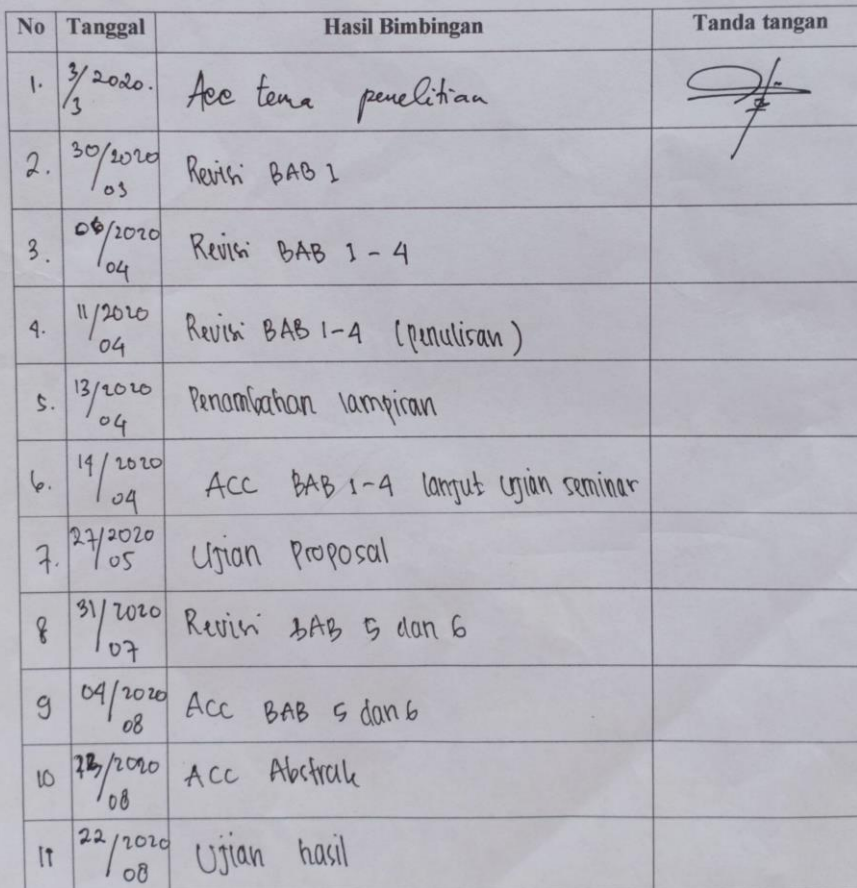 No Tanggal Hasil Bimbingan Tanda tangan
1. 3/3 2020. Acc tema penelitian
2. 30/03 2020 Revisi BAB 1
3. 06/04 2020 Revisi BAB 1 - 4
4. 11/04 2020 Revisi BAB 1-4 (penulisan)
5. 13/04 2020 Penambahan lampiran
6. 14/04 2020 ACC BAB 1-4 lanjut ujian seminar
7. 27/05 2020 Ujian Proposal
8 31/07 2020 Revisi BAB 5 dan 6
9 04/08 2020 ACC BAB 5 dan 6
10 /08 2020 ACC Abstrak
11 22/08 2020 Ujian hasil